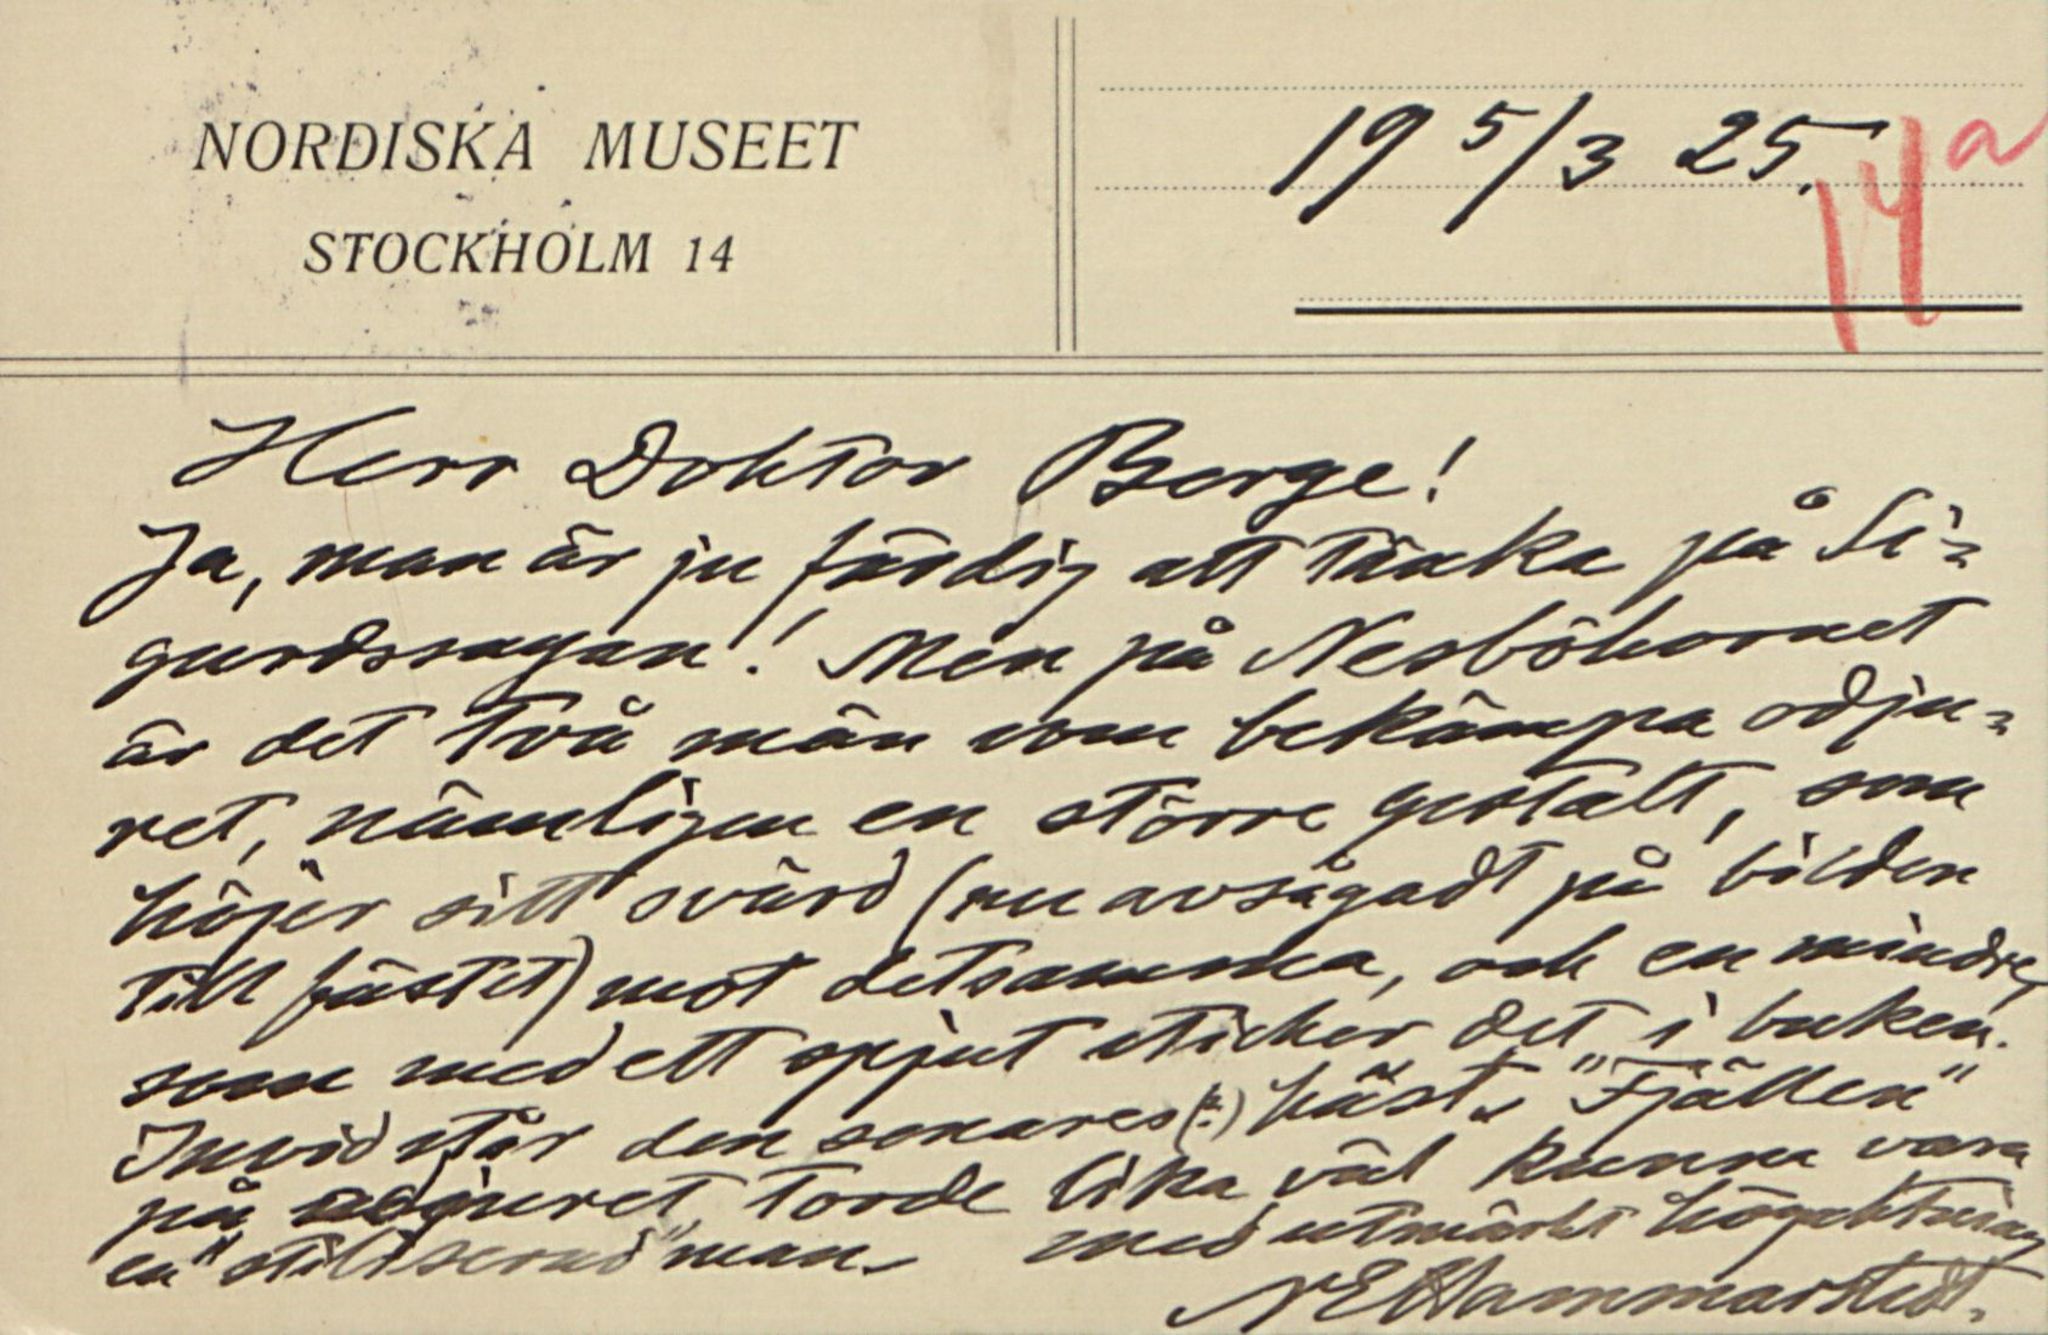 NORDISKA MUSEET
STOCKHOLM 14
19 5/3 25.
14a
Herr Doktor Berge!
Ja, man är ju färdig att tänka på Si-
gurdssagan! Men på Nesböhornet
är det två män som bekämpa odju-
ret, nämligen en större gestalt, som
höjer sitt svärd (nu avsågadt på bilden
till fästet) mot detsamma, och en mindre,
som med ett spjut sticker det i buken.
Invid står den senares(?) häst. "Fjällen"
på odjuret torde lika väl kunna vara
en "stiliserad" man. Med utmärkt högaktning
NEHammarstedt.